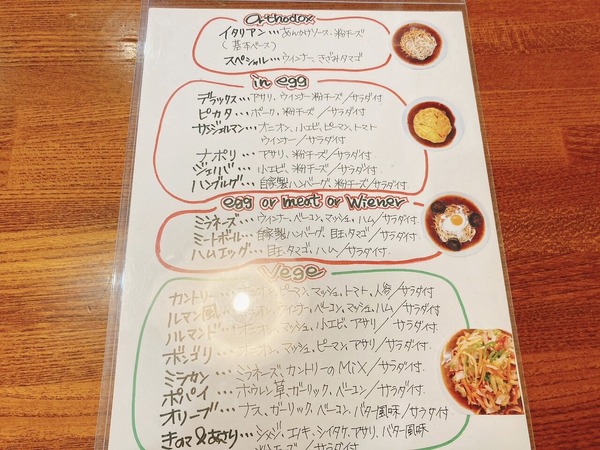 Orthodox
イタリアン…あんかけソース、粉チーズ
(基本ベース)
スペシャル…ウインナー、きざみタマゴ
in egg
デラックス…アサリ、ウインナー 粉チーズ/サラダ付
ピカタ…ポーク、粉チーズ/サラダ付
サンジェルマン…オニオン、小エビ、ピーマン、トマト
ウインナー/サラダ付
ナポリ…アサリ、粉チーズ/サラダ付
ジェノバ…小エビ、粉チーズ/サラダ付
ハンブルグ…自家製ハンバーグ、粉チーズ/サラダ付
egg or meat or Wiener
ミラネーズ…ウィンナー、ベーコン、マッシュ、ハム/サラダ付
ミートボール…自家製ハンバーグ、目玉、タマゴ/サラダ付
ハムエッグ…目玉、タマゴ、ハム/サラダ付
Vege
カントリー…ピーマン、マッシュ、トマト、人参/サラダ付
ルマン風…ウインナー、ベーコン、マッシュ、ハム/サラダ付
ハルマンド…マッシュ、小エビ、アサリ/サラダ付
ボンゴリ…オニオン、マッシュ、ピーマン、アサリ/サラダ付
ミラカン…ミラネーズ、カントリーのMIX/サラダ付
ポパイ…ホウレン草、ガーリック、ベーコン/サラダ付
オリーブ…ナス、ガーリック、ベーコン、バター風味/サラダ付
きのこ&あさり…シメジ、エノキ、シイタケ、アサリ、バター風味
/サラダ付